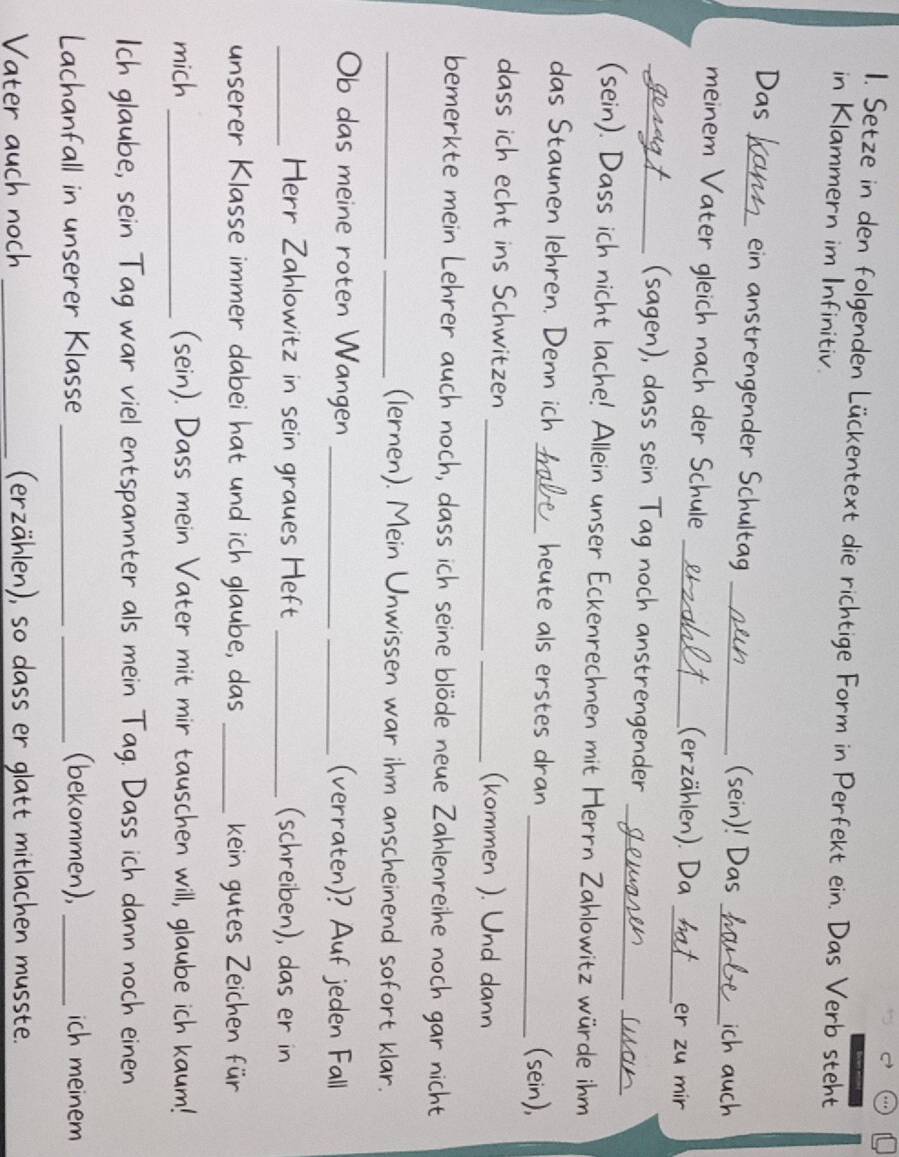 1. Setze in den folgenden Lückentext die richtige Form in Perfekt ein. Das Verb steht
in Klammern im Infinitiv.
Das kann ein anstrengender Schultag sein (sein)! Das habe ich auch
meinem Vater gleich nach der Schule erzählt (erzählen). Da hat er zu mir
gesagt (sagen), dass sein Tag noch anstrengender gewesen
(sein). Dass ich nicht lache! Allein unser Eckenrechnen mit Herrn Zahlowitz würde ihm
das Staunen lehren. Denn ich habe heute als erstes dran ______ (sein),
dass ich echt ins Schwitzen ______ ______ (kommen). Und dann
bemerkte mein Lehrer auch noch, dass ich seine blöde neue Zahlenreihe noch gar nicht
______ ______ (lernen). Mein Unwissen war ihm anscheinend sofort klar.
Ob das meine roten Wangen ______ ______ (verraten)? Auf jeden Fall
______ Herr Zahlowitz in sein graues Heft ______ (schreiben), das er in
unserer Klasse immer dabei hat und ich glaube, das ______ kein gutes Zeichen für
mich ______ (sein). Dass mein Vater mit mir tauschen will, glaube ich kaum!
Ich glaube, sein Tag war viel entspannter als mein Tag. Dass ich dann noch einen
Lachanfall in unserer Klasse ______ ______ (bekommen), ______ ich meinem
Vater auch noch ______ (erzählen), so dass er glatt mitlachen musste.